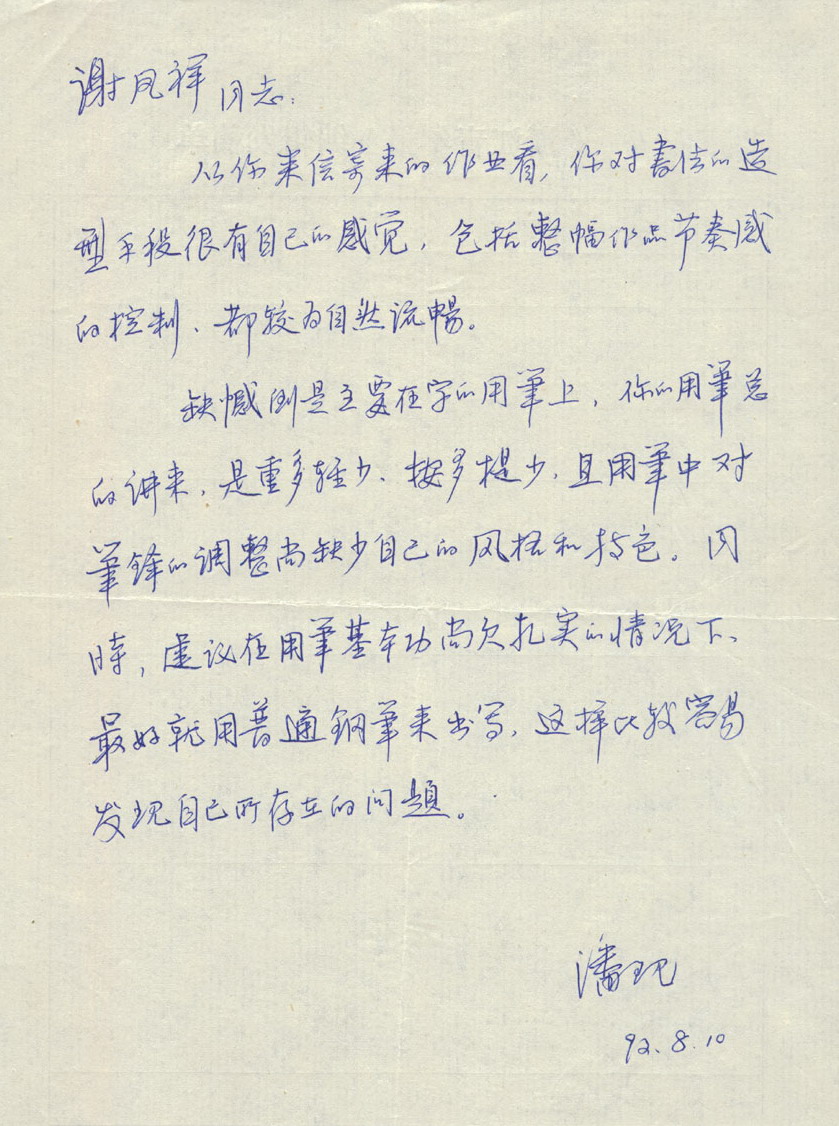 谢凤祥同志：
从你来信寄来的作业看，你对書法的造
型手段很有自己的感觉，包括整幅作品节奏感
的控制、都较为自然流暢。
缺憾倒是主要在字的用筆上，你的用筆总
的讲来，是重多轻少、按多提少，且用筆中对
筆锋的调整尚缺少自己的风格和特色。同
時，建议在用筆基本功尚欠扎实的情况下、
最好就用普通鋼筆来书写，这样比较容易
发现自己所存在的问题。
潘
92.8.10